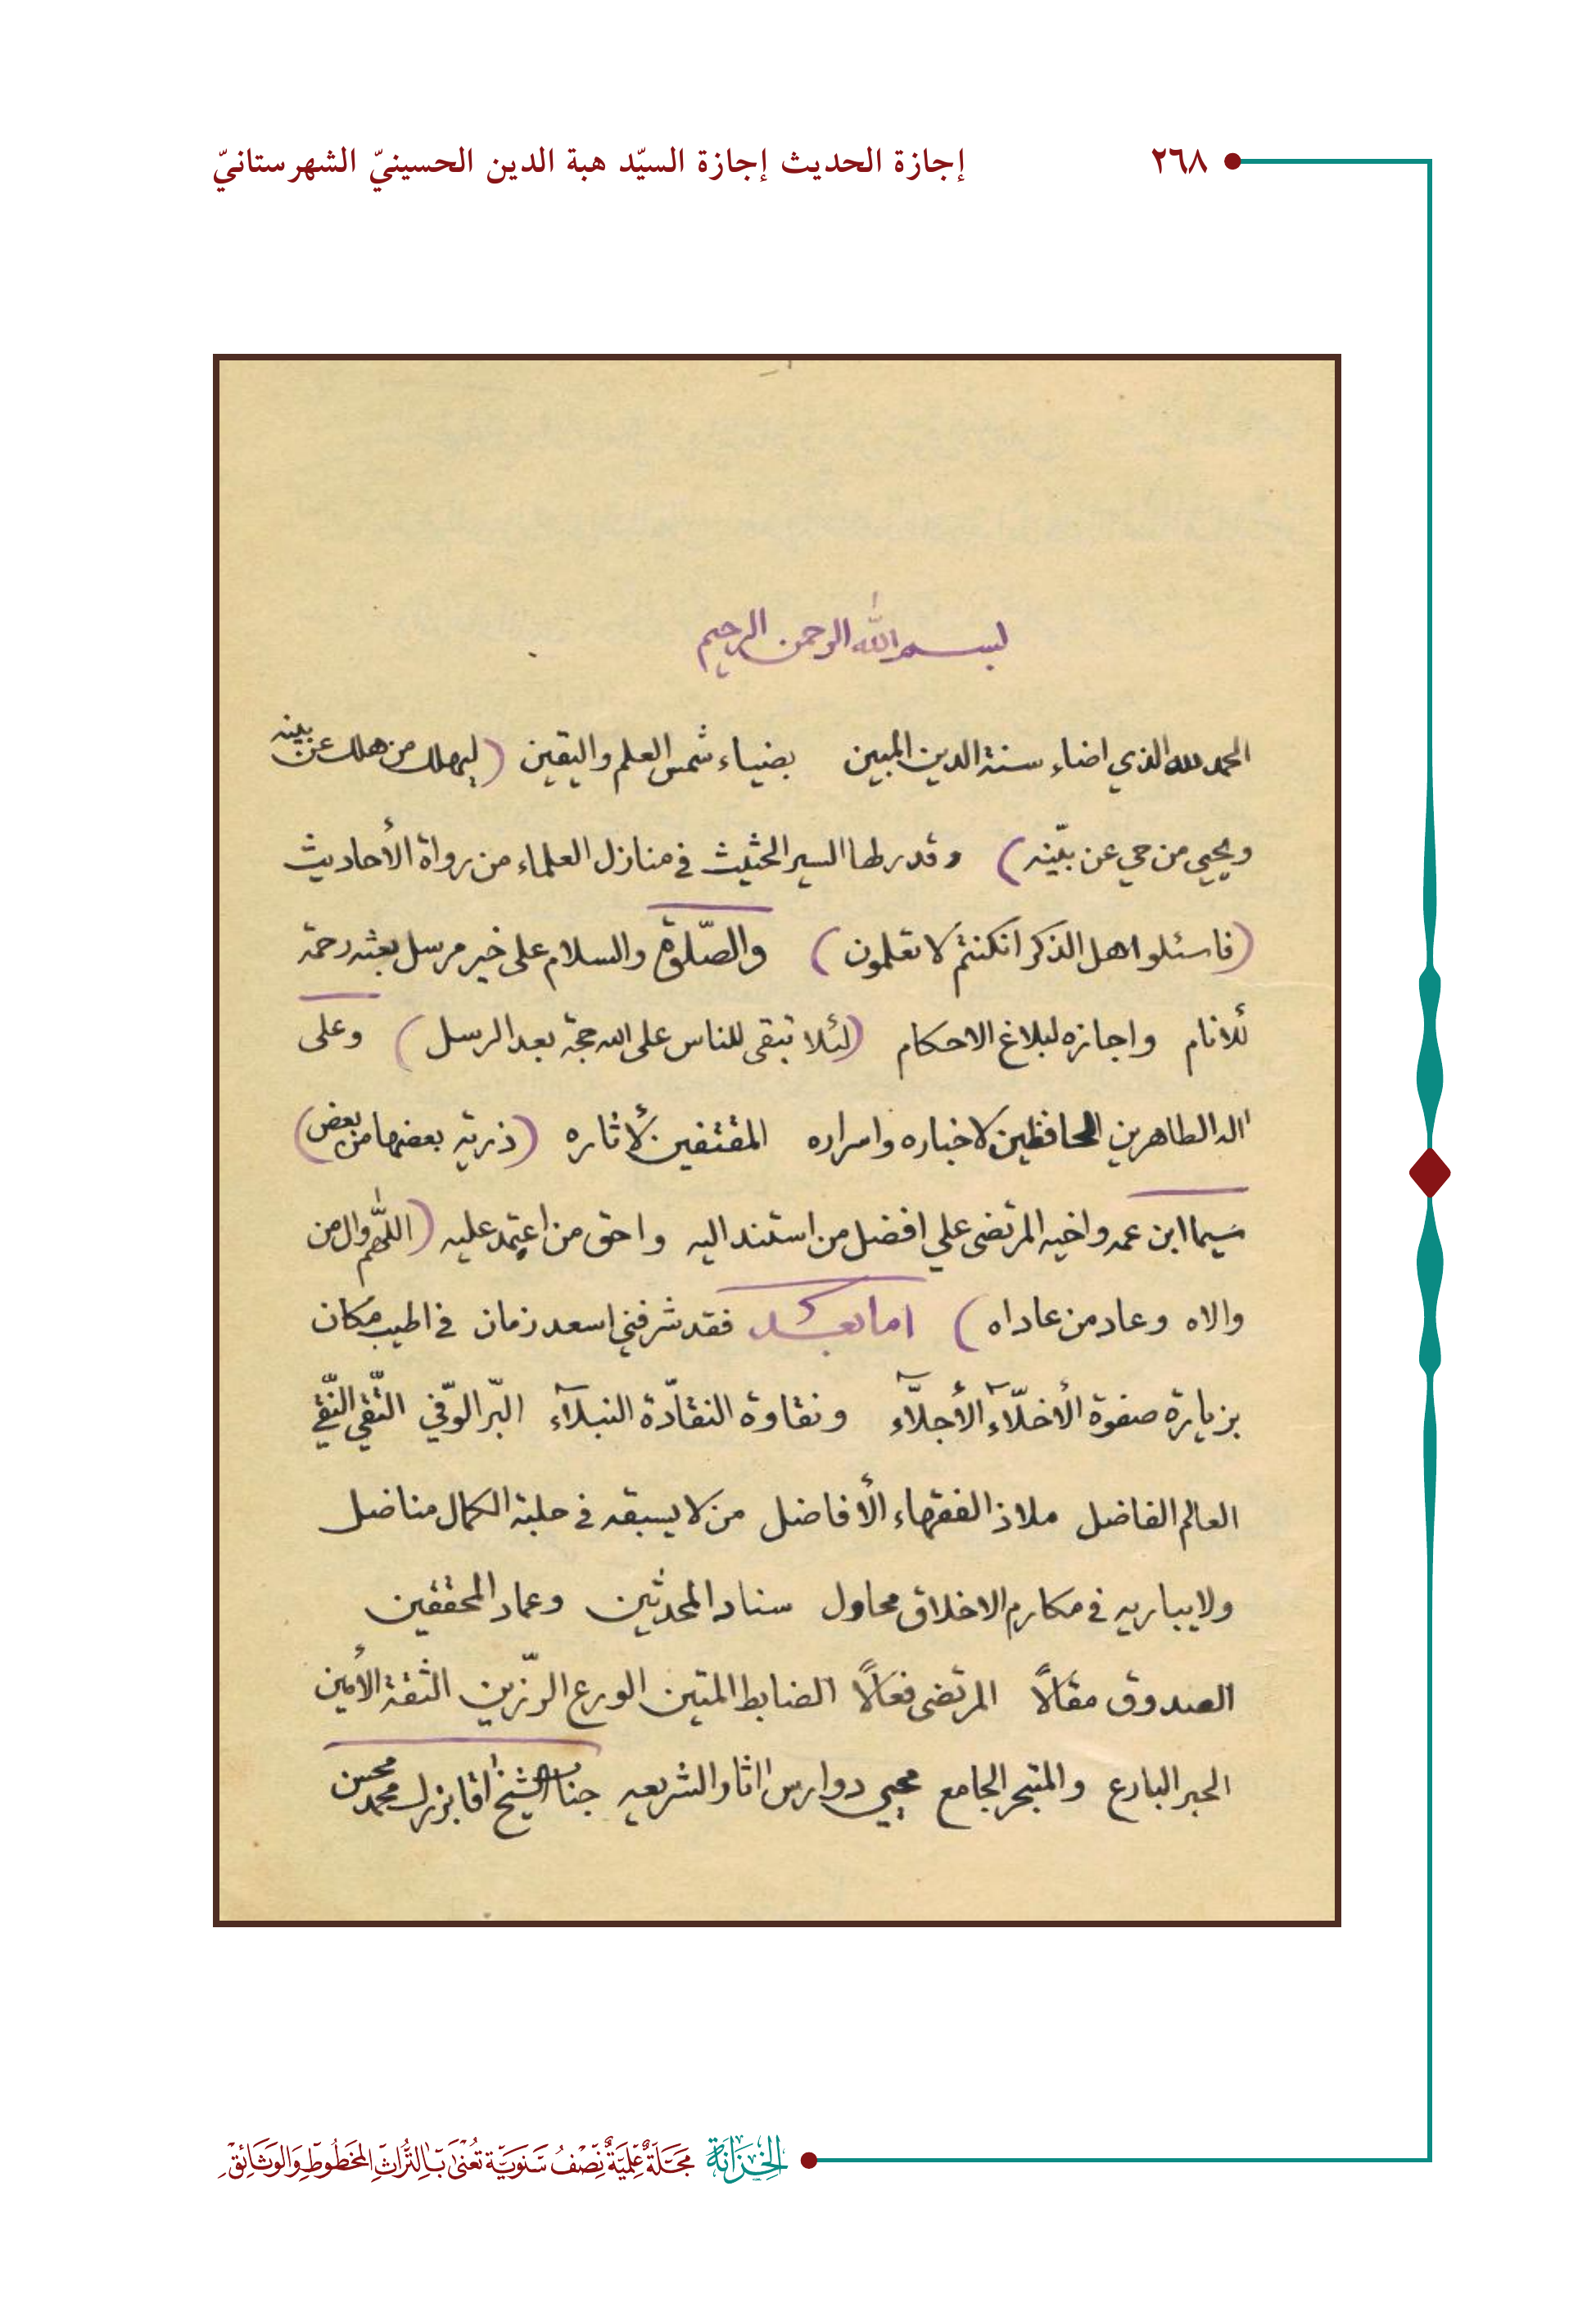 ٢٦٨
إجازة الحديث إجازة السيّد هبة الدين الحسينيّ الشهرستانيّ
بسم الله الرحمن الرحيم
الحمد لله الذي اضاء سنة الدين المبين بضياء شمس العلم واليقين (ليهلك من هلك عن بينه
ويحيي من حي عن بيّنه) وقدرها السير الحثيث في منازل العلماء من رواة الأحاديث
(فاسئلوا اهل الذكر انكنتم لا تعلمون) والصّلوة والسلام على خير مرسل بعثه رحمة
للانام واجازه لبلاغ الاحكام (لئلا تبقى للناس على الله حجة بعد الرسل) وعلى
اله الطاهرين الحافظين لاخباره واسراره المقتفين لأثاره (ذرية بعضها من بعض)
سيما ابن عمه واخيه المرتضى علي افضل من استند اليه واحق من اعتمد عليه (اللّهم وال من
والاه وعاد من عاداه) اما بعد فقد شرفني اسعد زمان في اطيب مكان
بزيارة صفوة الأخلّاء الأجلّاء ونقاوة النقادّة النبلآء البّر الوّفي التّقي النّقي
العالم الفاضل ملاذ الفقهاء الأفاضل من لا يسبقه في حلبة الكمال مناضل
ولا يباريه في مكارم الاخلاق محاول سناد المحدثين وعماد المحققين
الصدوق مقالًا المرتضى فعالًا الضابط المتين الورع الرّزين الثقة الأمين
الحبر البارع والمتبحر الجامع محيي دوارس اثار الشريعه جناب الشيخ اقا بزرك محمد محسن
الخزانة مجلة علمية نصف سنوية تعنى بالتراث المخطوط والوثائق